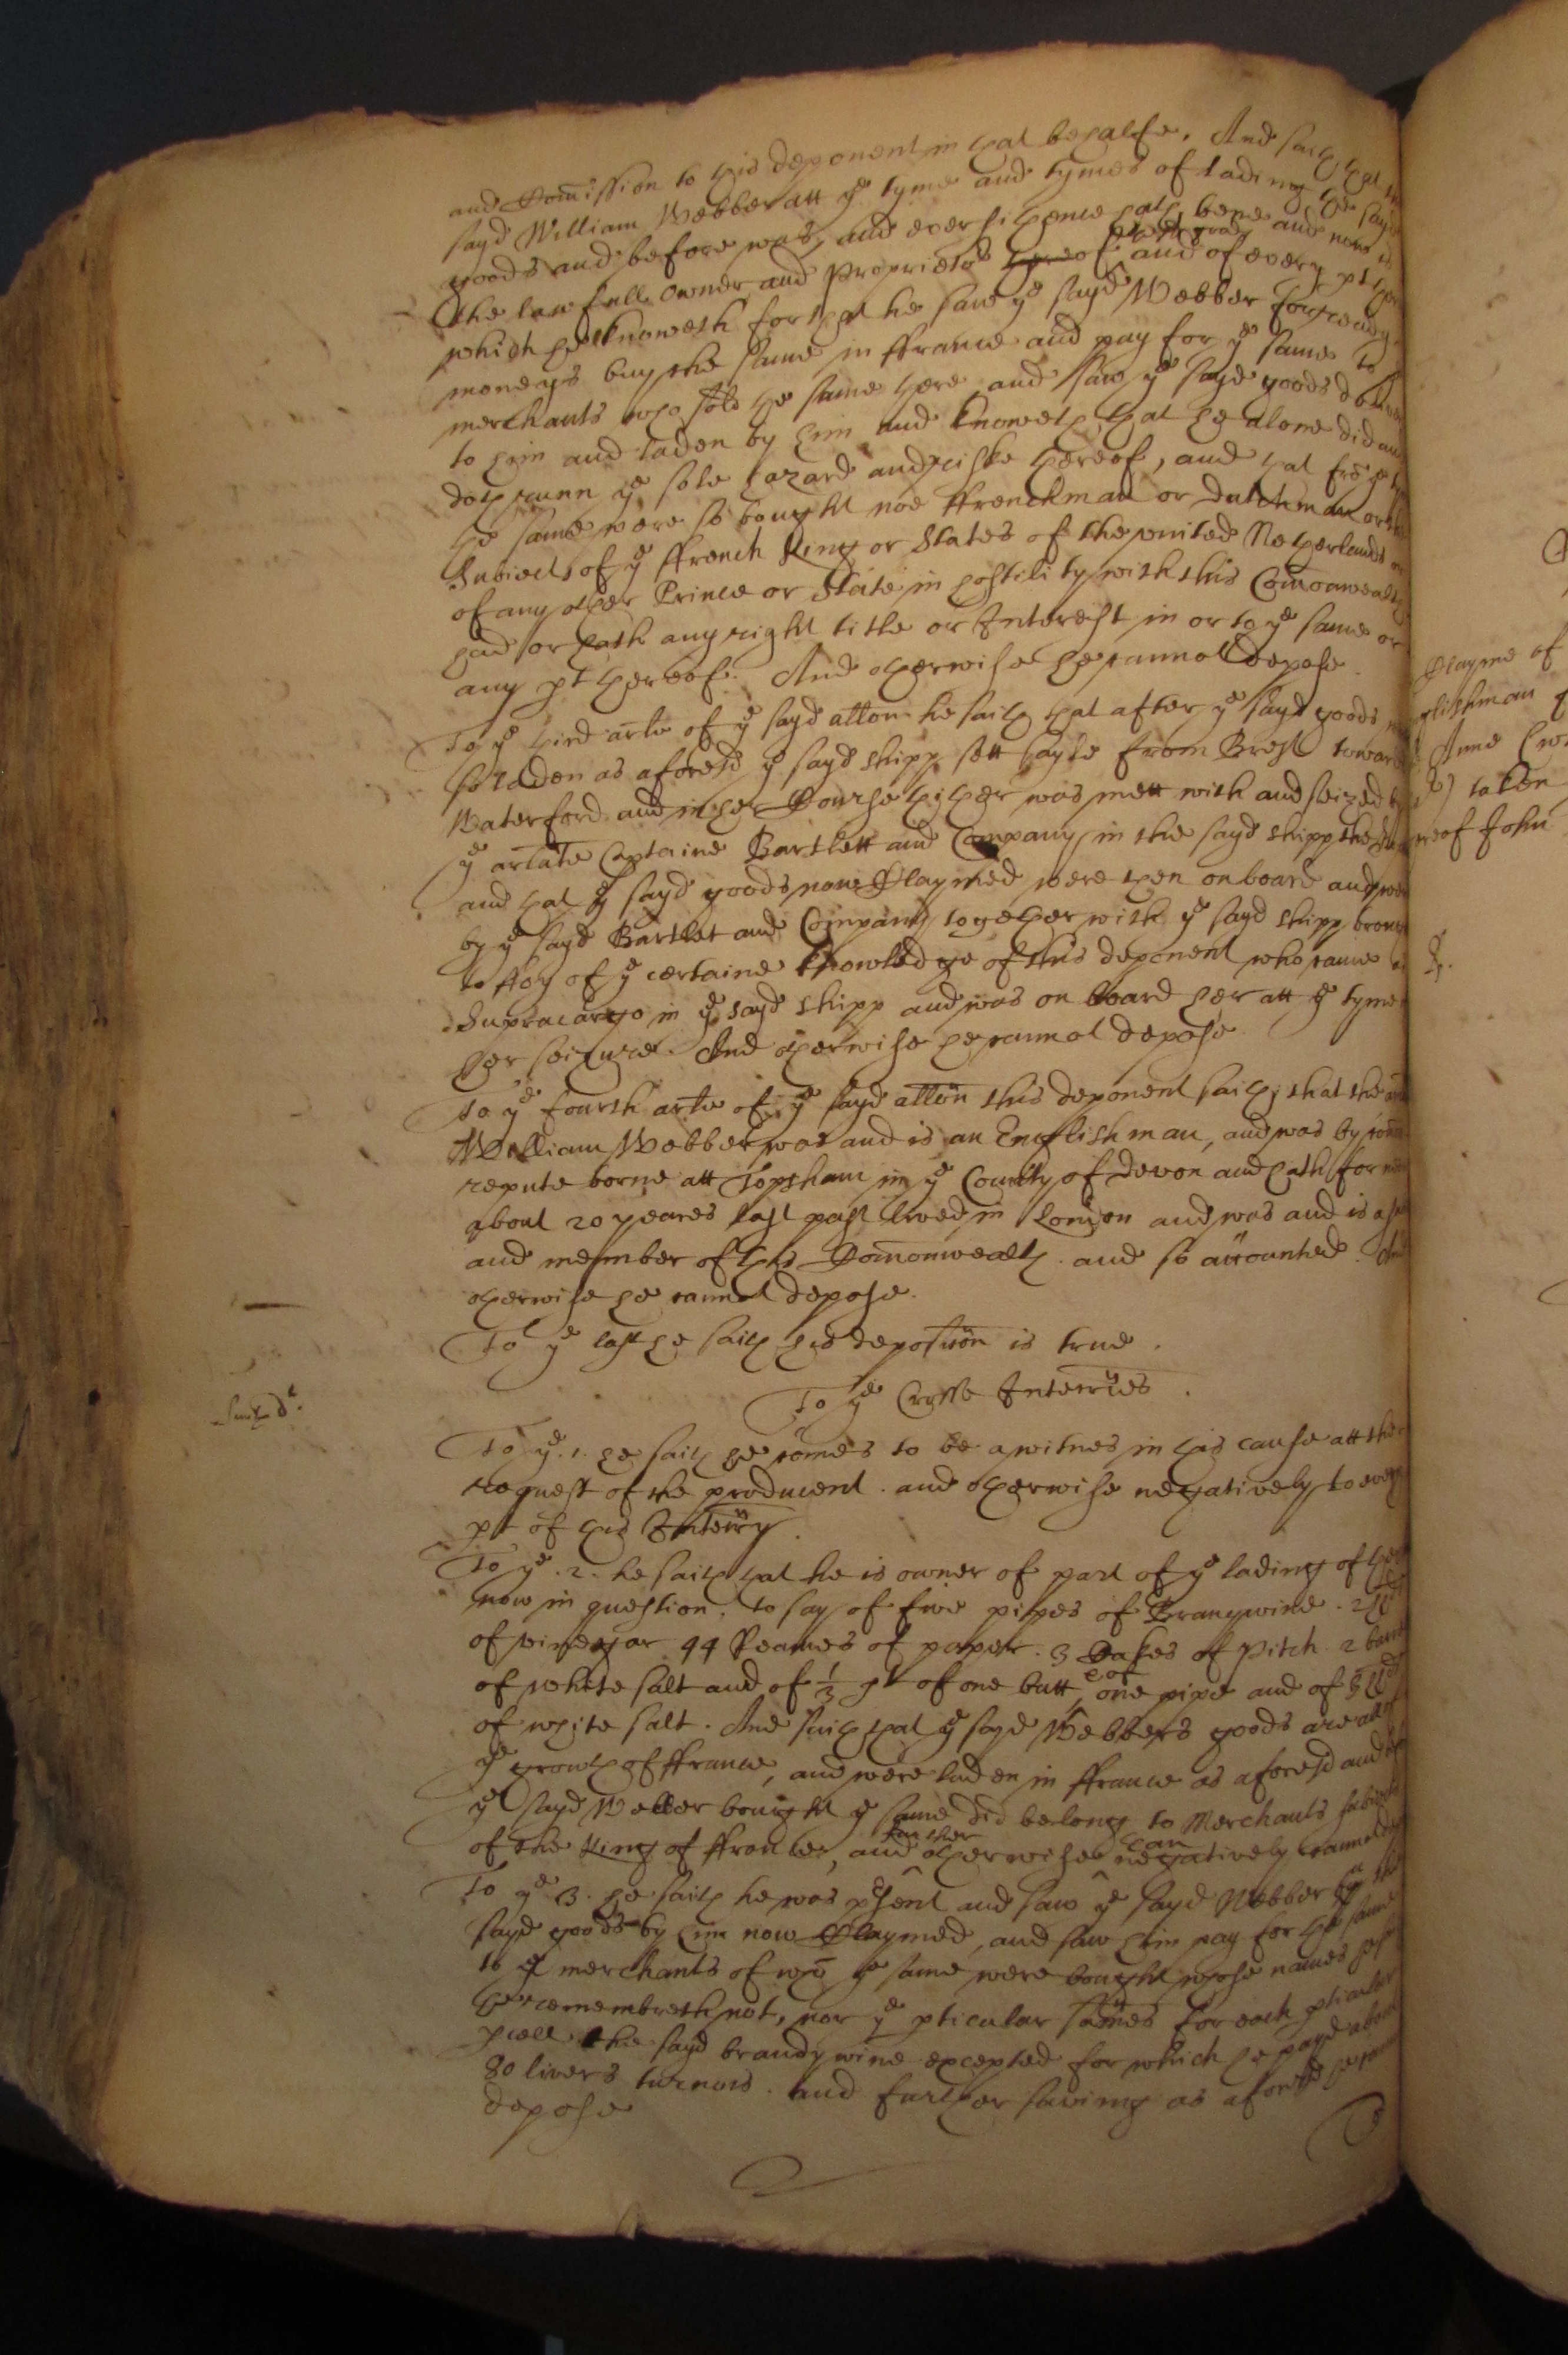 and Comission to this deponent in that behalfe. And saith that the
sayd William Webber att ye tyme and tymes of lading the sayd
goods and before was, and ever sithence hath bene and now is
the lawfull Owner and Proprietor thereof and of every pt
which he knoweth for that he saw ye sayd Webber for ready
moneys buy the same in ffrance and pay for ye same to
merchants who sold the same there and saw ye sayd goods
to him and laden by him and knoweth that he alone did and
doth runn ye sole hazard and riske thereof, and that frō ye
the same were so bought noe ffrenchman or Dutchman or
Subiects of ye ffrench King or States of the united Netherlands or
of any other Prince or State in hostility with this Comonwealth
had or hath any right title or Interest in or to ye same or
any pt thereof. And otherwise he cannot depose.
To ye third artle of ye sayd attōn he saith that after ye sayd goods
so laden as aforesd ye sayd shipp sett sayle from Brest towards
Waterford and in her Course thither was mett with and seized by
ye artlate Captaine Bartlett and Company in the sayd shipp the
and that ye sayd goods now Claymed were then on board and were
by ye sayd Bartlet and Company together with ye sayd shipp brought
to ffoy of ye certaine knowledge of this deponent who came
Supracargo in ye sayd shipp and was on board her att ye tyme
her seizure. And otherwise he cannot depose
To ye fourth artle of ye sayd attōn this deponent saith that the
William Webber was and is an Englishman, and was by comon
repute borne att Topsham in ye County of Devon and hath for
about 20 yeares last past lived in London and was and is a
and member of this Comonwealth. and so accounted. And
otherwise he cannot depose.
To ye last he saith his deposition is true.
To ye Crosse Interries.
To ye .1. he saith he comes to be a witnes in this cause att the
request of the producent. and otherwise negatively to every
pt of this Interry.
To ye .2. he saith that he is owner of part of ye lading of
now in question. to say of five pipes of Brandywine. 2
of vinegar 44 Reames of paper. 3 Caskes of Pitch 2
of white salt and of 1/3 pt of one butt, & of one pipe and of
of white salt. And saith that ye sayd Webbers goods are all of
ye growth of ffrance, and were laden in ffrance as aforesd and
ye sayd Webber bought ye same did belong to Merchants subiects
of the King of ffrance, and further otherwise can negatively cannot
To ye 3. he saith he was psent and saw ye sayd Webber buy the
sayd goods by him now Claymed, and saw him pay for the same
to ye merchants of whō ye same were bought whose names
he remembreth not, nor ye pticular sumes for each pticular
pcell the sayd brandywine excepted for which he payd about
80 livers turnois. and further saving as aforesd he cannot
depose
Clayme of
glishman
Anne
taken
of John